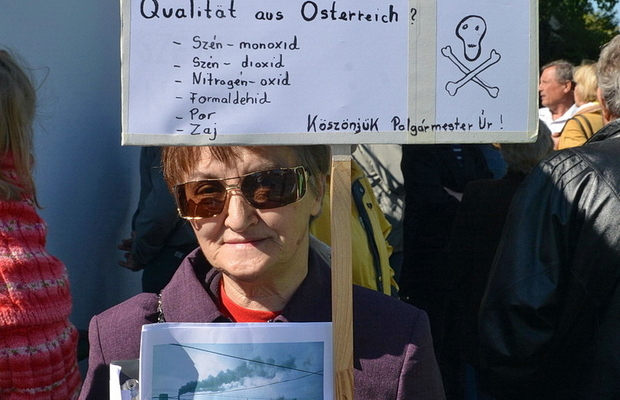 Qualität aus Österreich?
- Szén-monoxid
- Szén-dioxid
- Nitrogén-oxid
- Formaldehid
- Por
- Zaj
Köszönjük Polgármester Úr!